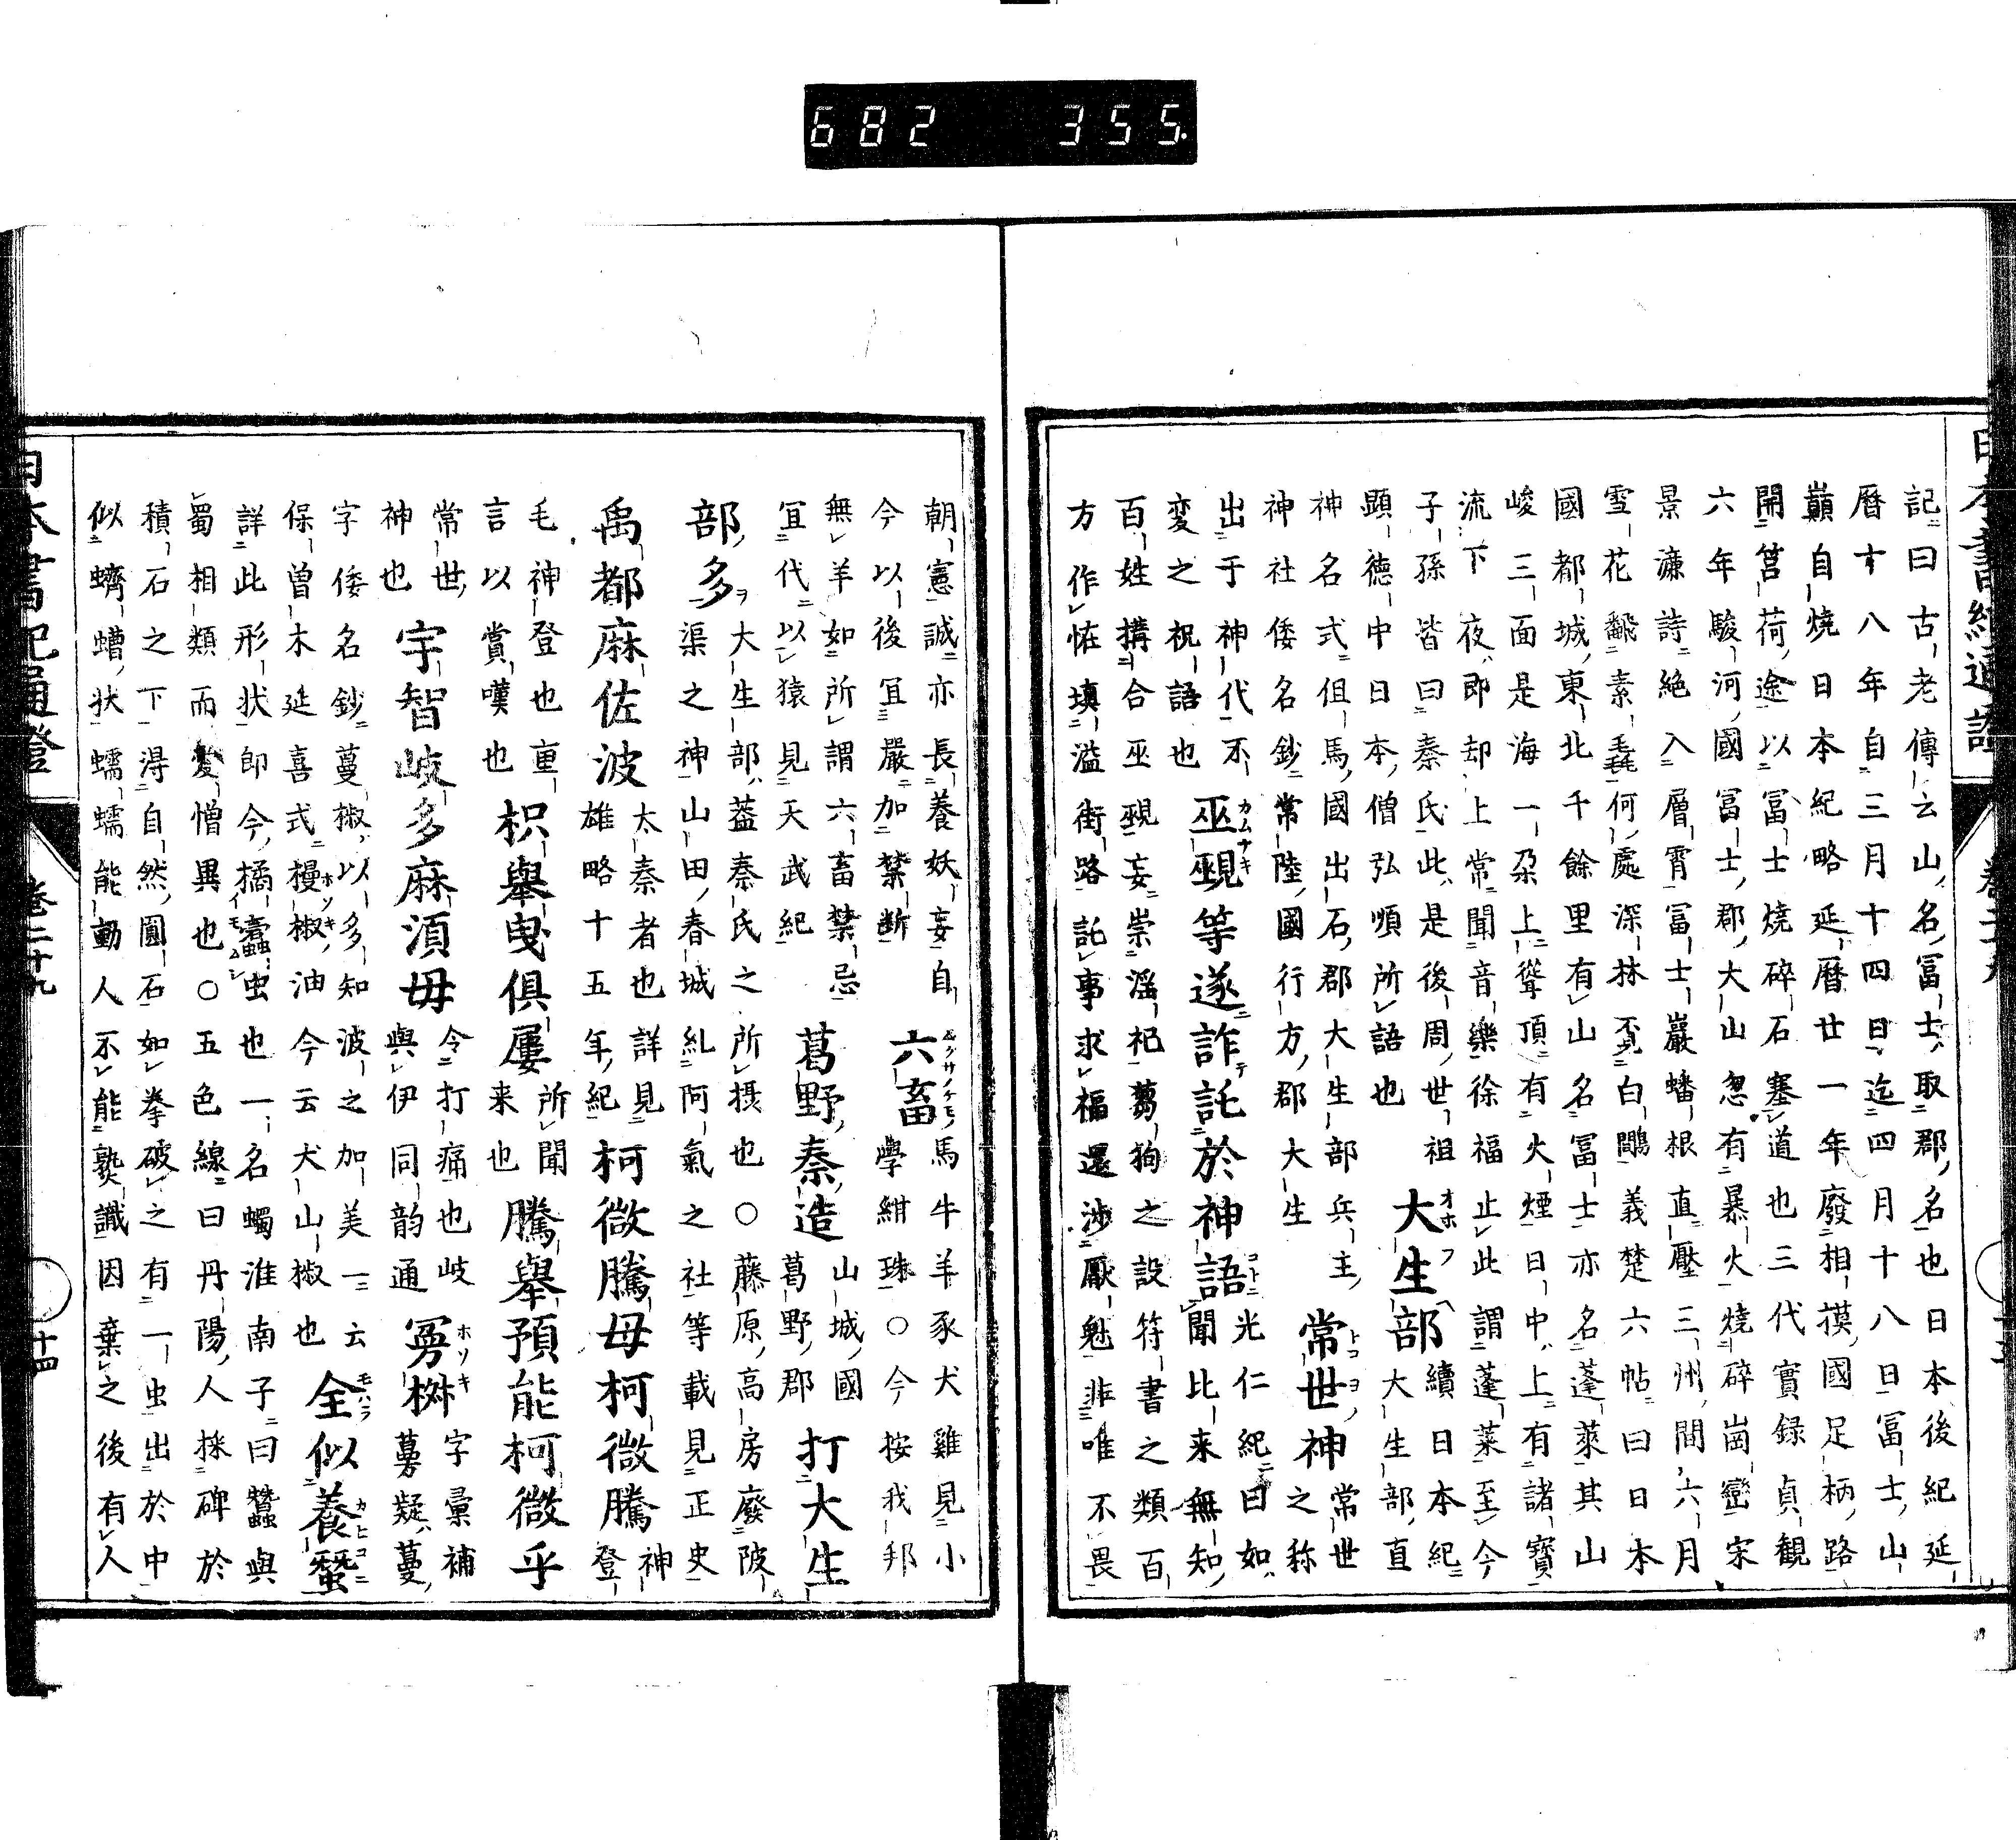 記曰古老傳云山名冨士取郡名也日本後紀延
曆十八年自三月十四日迄四月十八日冨士山
巓自燒日本紀略延曆廿一年廢相摸國足柄路
開筥荷途以冨士燒碎石塞道也三代實録貞観
六年駿河國冨士郡大山忽有暴火燒碎崗巒宋
景濂詩絶入層霄冨士巖蟠根直壓三州間六月
雪花飜素毳何處深林覔白鷴義楚六帖曰日本
國都城東北千餘里有山名冨士亦名蓬萊其山
峻三面是海一朶上聳頂有火煙日中上有諸寶
流下夜即却上常聞音樂徐福止此謂蓬萊至今
子孫皆曰秦氏此是後周世祖
顕德中日本僧弘順所語也
大生部
續日本紀
大生部直
神名式但馬國出石郡大生部兵主
神社倭名鈔常陸國行方郡大生
常世神
常世
之称
出于神代不
変之祝語也
巫覡等遂詐託於神語
光仁紀曰如
聞比来無知
百姓搆合巫覡妄崇滛祀蒭狗之設符書之類百
方作恠填溢街路託事求福還渉厭魅非唯不畏
朝憲誠亦長養妖妄自
今以後冝嚴加禁断
六畜
馬牛羊豕犬雞見小
學紺珠○今按我邦
無羊如所謂六畜禁忌
冝代以猿見天武紀
葛野秦造
山城國
葛野郡
打大生
部多
大生部蓋秦氏之所摂也○藤原高房廢陂
渠之神山田春城糺阿氣之社等載見正史
禹都麻佐波
太秦者也詳見
雄略十五年紀
柯微騰母柯微騰
神
登
毛神登也重
言以賞嘆也
枳舉曳倶屢
所聞
来也
騰舉預能柯微乎
常世
神也
宇智岐多麻湏毋
令打痛也岐
與伊同韵通
字彙補
蔓疑蔓
字倭名鈔蔓椒以多知波之加美一云
保曾木延喜式椒油今云犬山椒也
全似養蠶
詳此形状即今橘蠹虫也一名蠋淮南子曰蠶與
蜀相類而愛憎異也○五色線曰丹陽人採碑於
積石之下得自然圓石如拳破之有一虫出於中
似蠐螬状蠕蠕能動人不能孰識因棄之後有人
日本書紀通證
巻二十九
十四
682 355